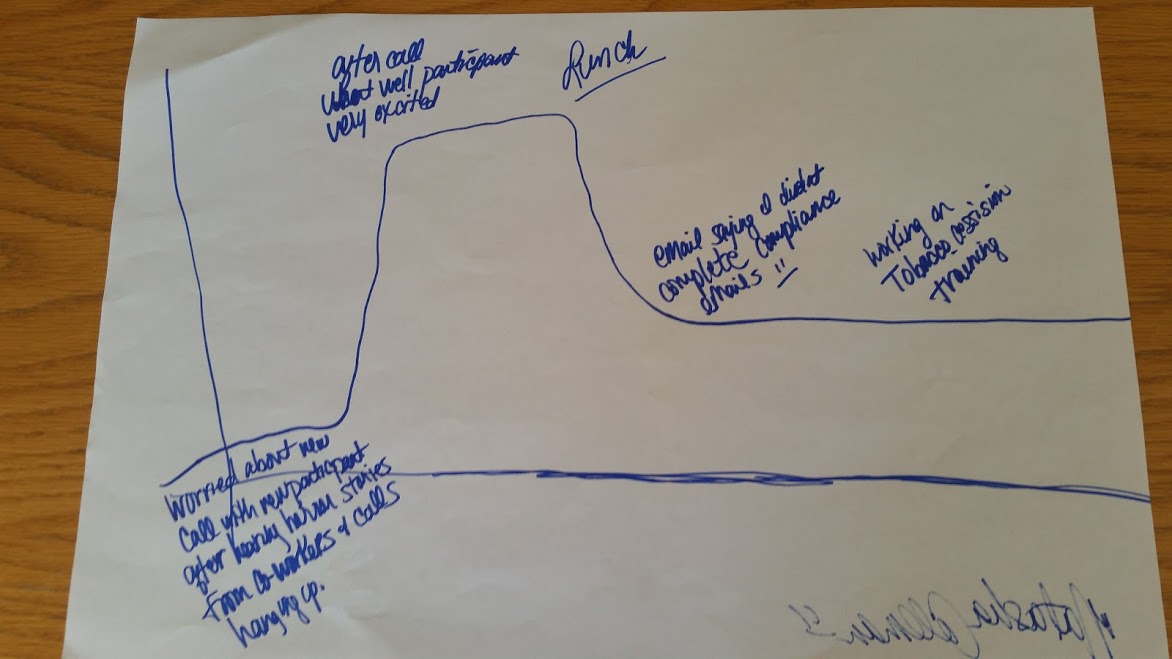 after call
went well participant
very excited
Lunch
email saying I didnt
complete compliance
emails !!
working on
Tobacco cession
training
Worried about new
call with new participant
after hearing horror stories
from co-workers & calls
hanging up.
Natasha